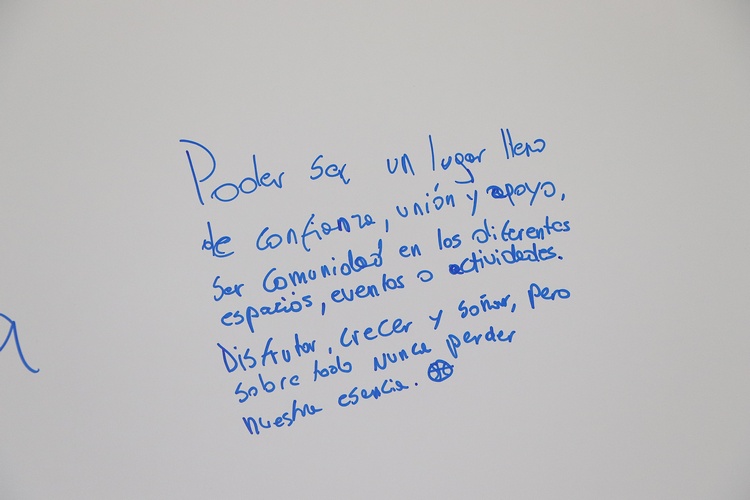 Poder ser un lugar lleno
de confianza, unión y apoyo,
ser comunidad en los diferentes
espacios, eventos o actividades.
Disfrutar, crecer y soñar, pero
sobre todo nunca perder
nuestra esencia.